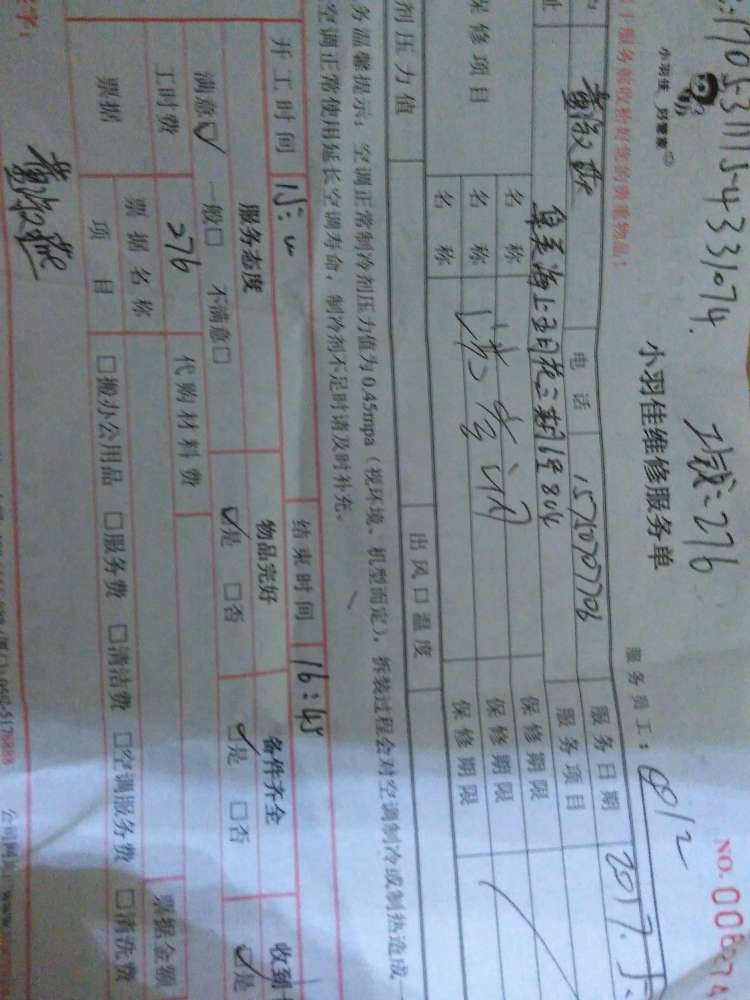 :1705311154331074.
276
小羽佳 好管家
小羽佳维修服务单
NO. 0008274
服务员工: 0812
服务前收拾好您的贵重物品!
电话 15710707706
服务日期 2017.5
址 阜美海上五月花三期 16号804
服务项目
保修项目
名称
保修期限
名称 清空调
保修期限
名称
保修期限
剂压力值
出风口温度
务温馨提示: 空调正常制冷剂压力值为0.45mpa(视环境、机型而定), 拆装过程会对空调制冷或制热造成
空调正常使用延长空调寿命, 制冷剂不足时请及时补充。
开工时间 15:00
结束时间 16:45
服务态度 物品完好 备件齐全 收到
满意☑ 一般□ 不满意□ ☑是 □否 ☑是 □否 ☑是
工时费 276 代购材料费
票据
票据名称
票据金额
项目 □搬办公用品 □服务费 □清洁费 □空调服务费 □清洗费
字:
公司网